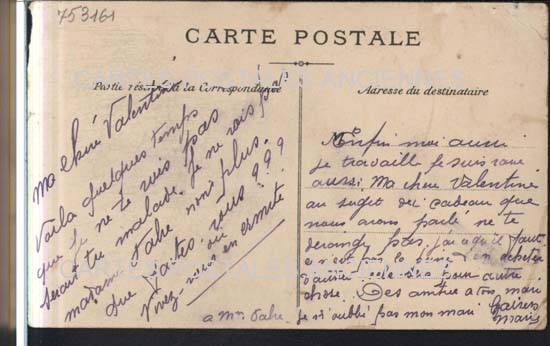 753161
CARTE POSTALE
Partie réservée à la Correspondance
Adresse du destinataire
CARTES POSTALES ANCIENNES
Ma Chère Valentine
Voila quelques temps
que je ne te vois pas
serait tu malade. Je ne vois pas
madame Fabre non plus.
Que faites vous ???
Vivez vous en ermite
ou
a Mme Fabre
Enfin moi aussi
je travaille je suis
aussi. Ma chere Valentine
au sujet du cadeau que
nous avons parlé ne te
derange pas. j'ai qu'il faut
c'est pas la peine d'en acheter
d'autre cela sera pour autre
chose. Des amitie a ton mari
Je n'oublie pas mon mari
baisers
Marie